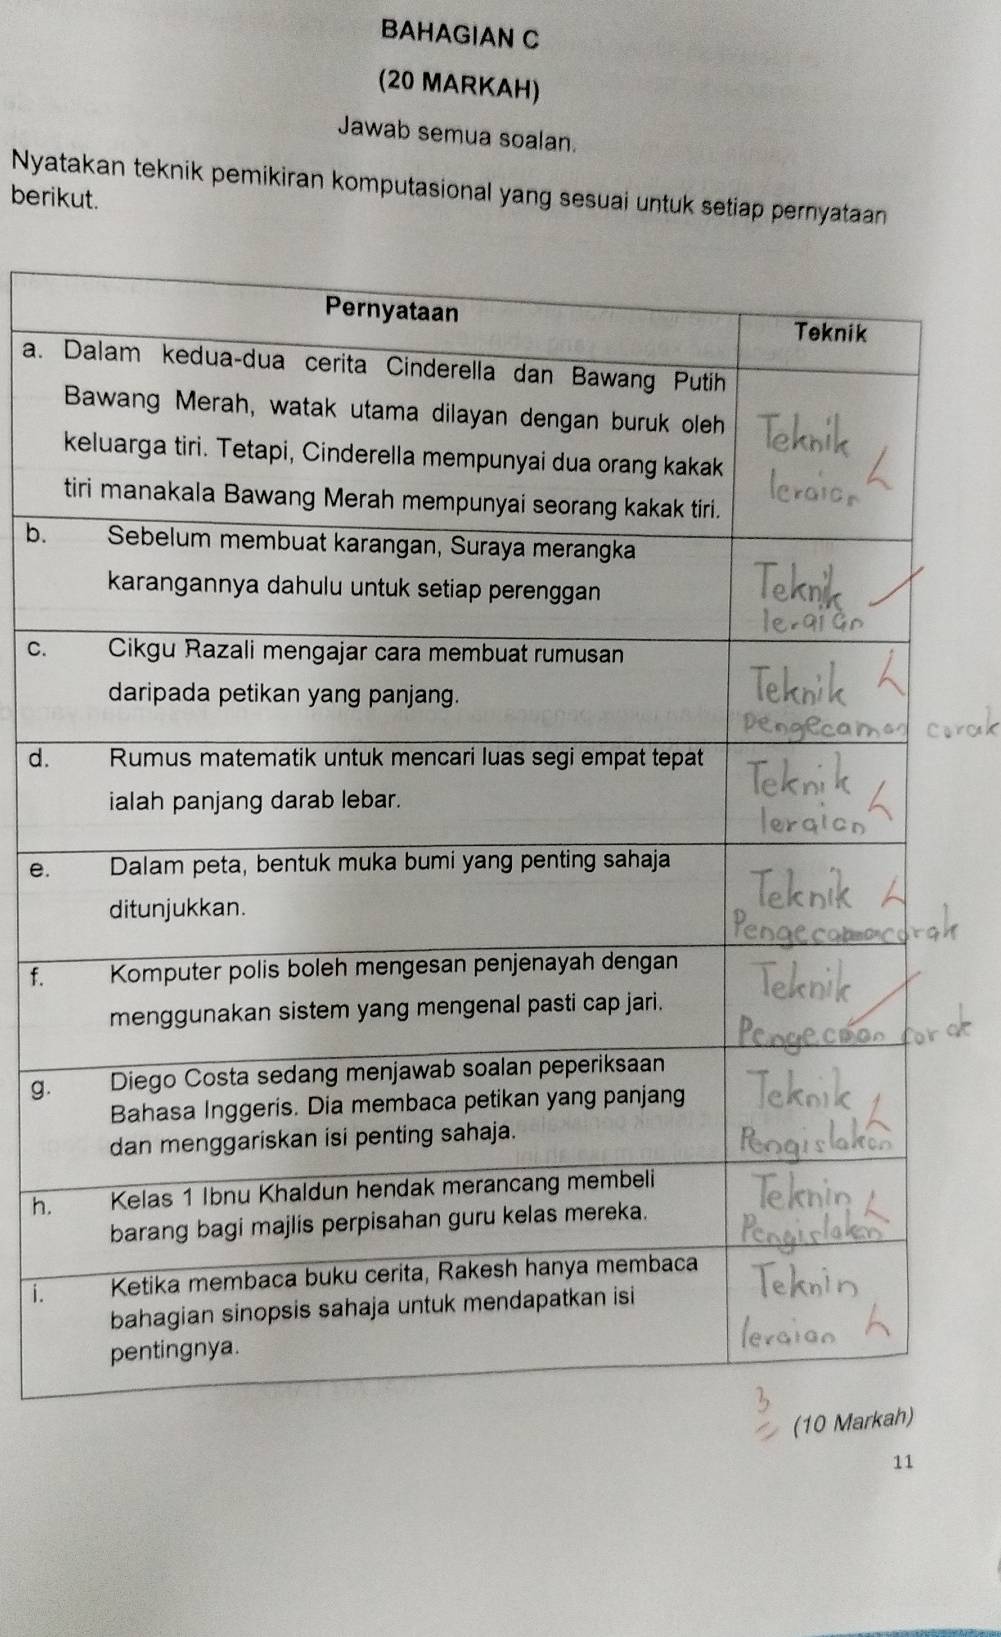 BAHAGIAN C
(20 MARKAH)
Jawab semua soalan.
Nyatakan teknik pemikiran komputasional yang sesuai untuk setiap pernyataan
berikut.
Pernyataan
Teknik
a. Dalam kedua-dua cerita Cinderella dan Bawang Putih
Bawang Merah, watak utama dilayan dengan buruk oleh
keluarga tiri. Tetapi, Cinderella mempunyai dua orang kakak
tiri manakala Bawang Merah mempunyai seorang kakak tiri.
Teknik
leraian
b. Sebelum membuat karangan, Suraya merangka
karangannya dahulu untuk setiap perenggan
Teknik
leraian
c. Cikgu Razali mengajar cara membuat rumusan
daripada petikan yang panjang.
Teknik
pengecaman corak
d. Rumus matematik untuk mencari luas segi empat tepat
ialah panjang darab lebar.
Teknik
leraian
e. Dalam peta, bentuk muka bumi yang penting sahaja
ditunjukkan.
Teknik
f. Komputer polis boleh mengesan penjenayah dengan
menggunakan sistem yang mengenal pasti cap jari.
Teknik
g. Diego Costa sedang menjawab soalan peperiksaan
Bahasa Inggeris. Dia membaca petikan yang panjang
dan menggariskan isi penting sahaja.
Teknik
Pengislakan
h. Kelas 1 Ibnu Khaldun hendak merancang membeli
barang bagi majlis perpisahan guru kelas mereka.
Teknin
Pengislaken
i. Ketika membaca buku cerita, Rakesh hanya membaca
bahagian sinopsis sahaja untuk mendapatkan isi
pentingnya.
Teknin
leraian
3
(10 Markah)
11